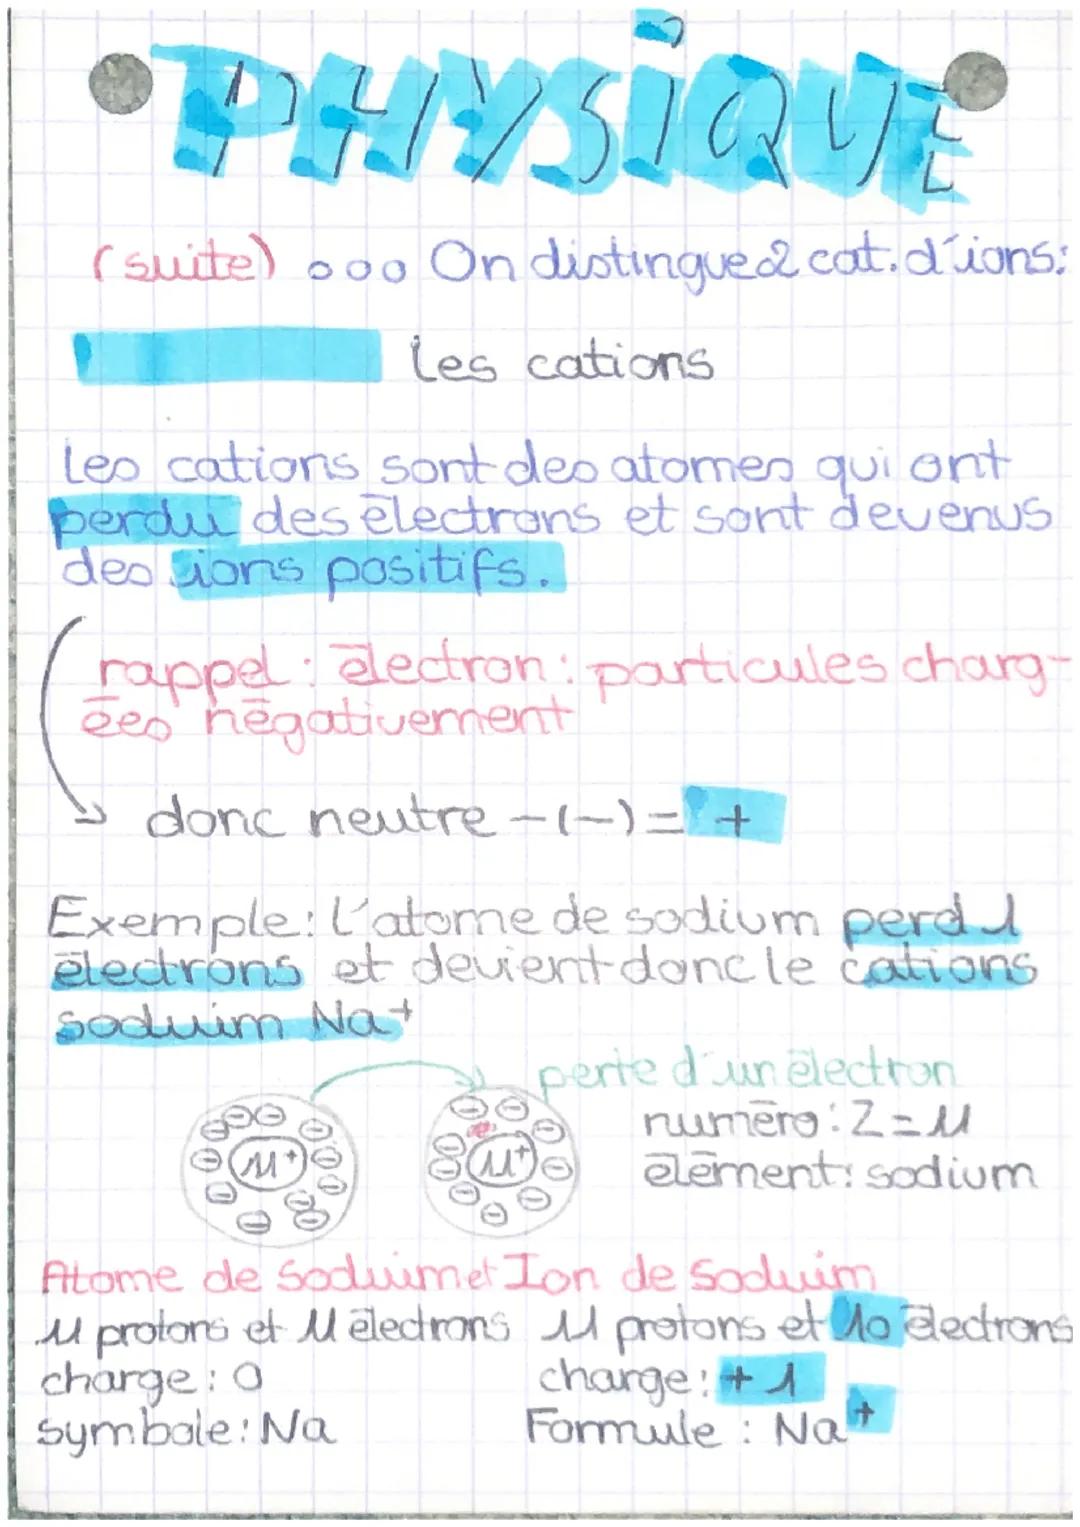 PHYSiQUE
(suite) ooo On distingue 2 cat. d'ions:
les cations
les cations sont des atomes qui ont
perdu des électrons et sont devenus
des ions positifs.
rappel : électron : particules charg-
ées négativement
donc neutre -(-)= +
Exemple: l'atome de sodium perd 1
électrons et devient donc le cations
soduim Na+
perte d'un électron
numéro : Z = 11
élément: sodium
11+
11+
Atome de Soduim et Ion de Soduim
11 protons et 11 électrons
charge : 0
symbole: Na
11 protons et 10 électrons
charge: + 1
Formule : Na+